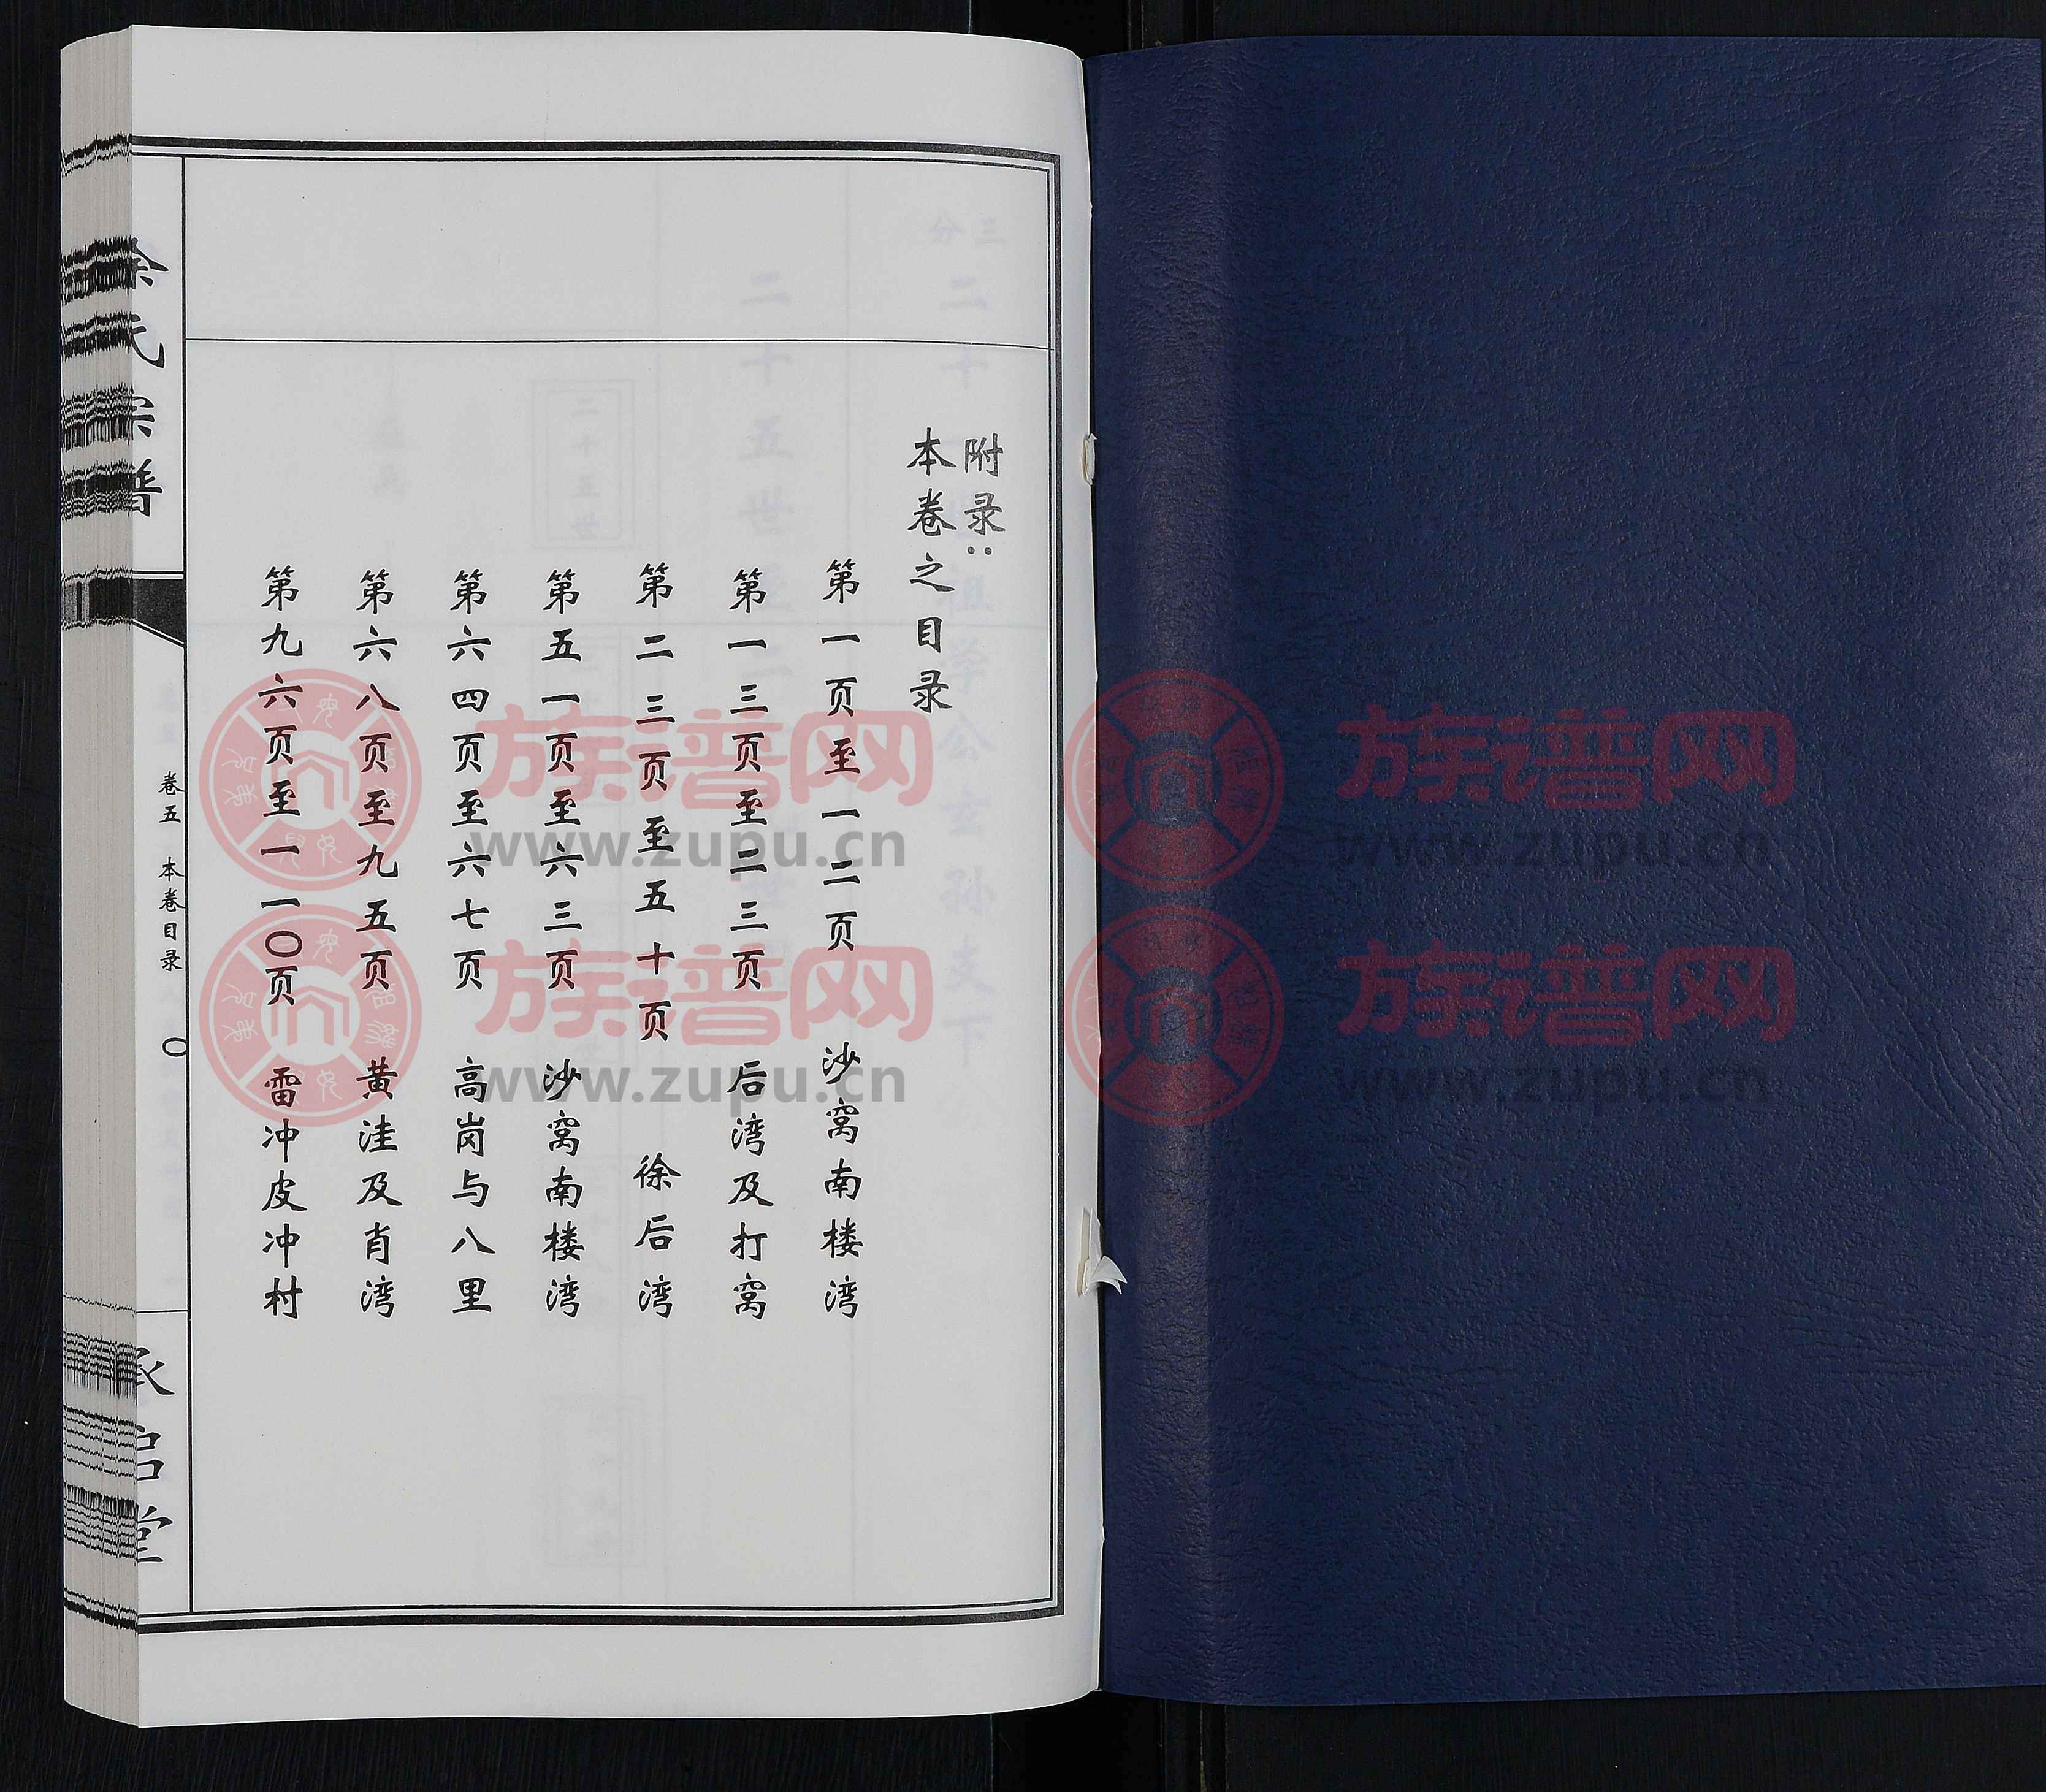 附录：
本卷之目录
第一页至一二页 沙窝南楼湾
第一三页至二三页 后湾及打窝
第二三页至五十页 徐后湾
第五一页至六三页 沙窝南楼湾
第六四页至六七页 高岗与八里
第六八页至九五页 黄洼及肖湾
第九六页至一一〇页 雷冲皮冲村
徐氏宗谱
卷五 本卷目录
〇
承启堂
族谱网
www.zupu.cn
族谱网
www.zupu.cn
族谱网
www.zupu.cn
族谱网
www.zupu.cn